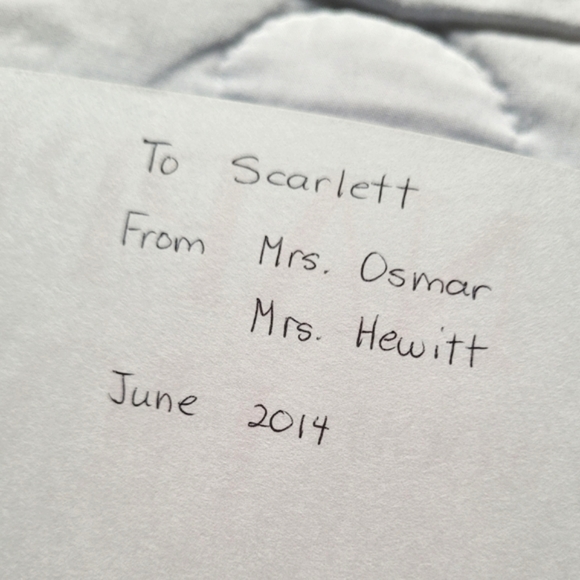 To Scarlett
From Mrs. Osmar
Mrs. Hewitt
June 2014